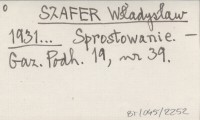 o
SZAFER Władysław
1931... Sprostowanie. –
Gaz. Podh. 19, nr 39.
BT/045/2252